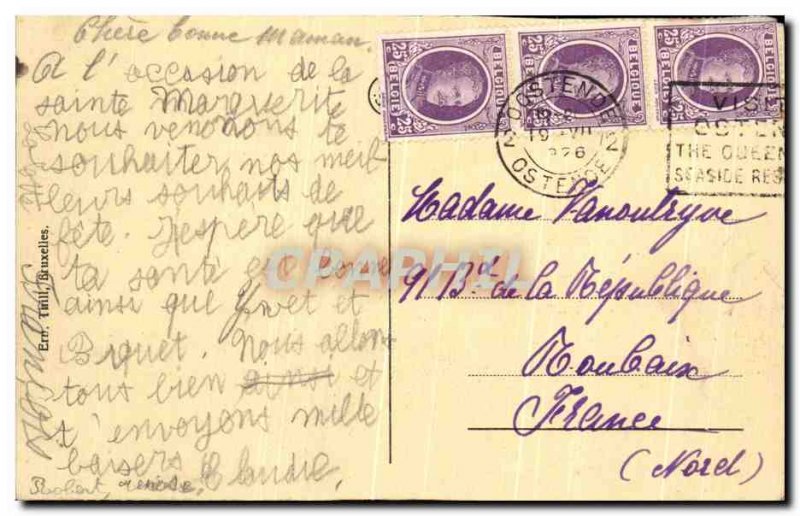 Chère bonne Maman.
A l'occasion de la
sainte Marguerite
nous venonons te
souhaiter nos meil
leurs souhaits de
fête. J'espere que
ta santé est bonne
ainsi que Yvet et
Biquet. Nous allons
tous bien ainsi et
t'envoyons mille
baisers Claudie,
Robert,
Ern. Thill, Bruxelles.
25c BELGIQUE BELGIË 25c
25c BELGIQUE BELGIË 25c
25c BELGIQUE BELGIË 25c
OOSTENDE
2 2
19 VII
OSTENDE
VISIT
OSTEN
THE QUEEN
SEASIDE RES
Madame Vanoutryve
91 Bd de la République
Roubaix
France
(Nord)
CPAPHIL